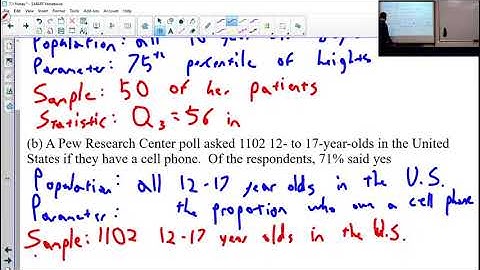 Population: all
Parameter: 75th percentile of heights
Sample: 50 of her patients
Statistic: Q3 = 56 in
(b) A Pew Research Center poll asked 1102 12- to 17-year-olds in the United
States if they have a cell phone. Of the respondents, 71% said yes
Population: all 12-17 year olds in the U.S.
Parameter: the proportion who own a cell phone
Sample: 1102 12-17 year olds in the U.S.